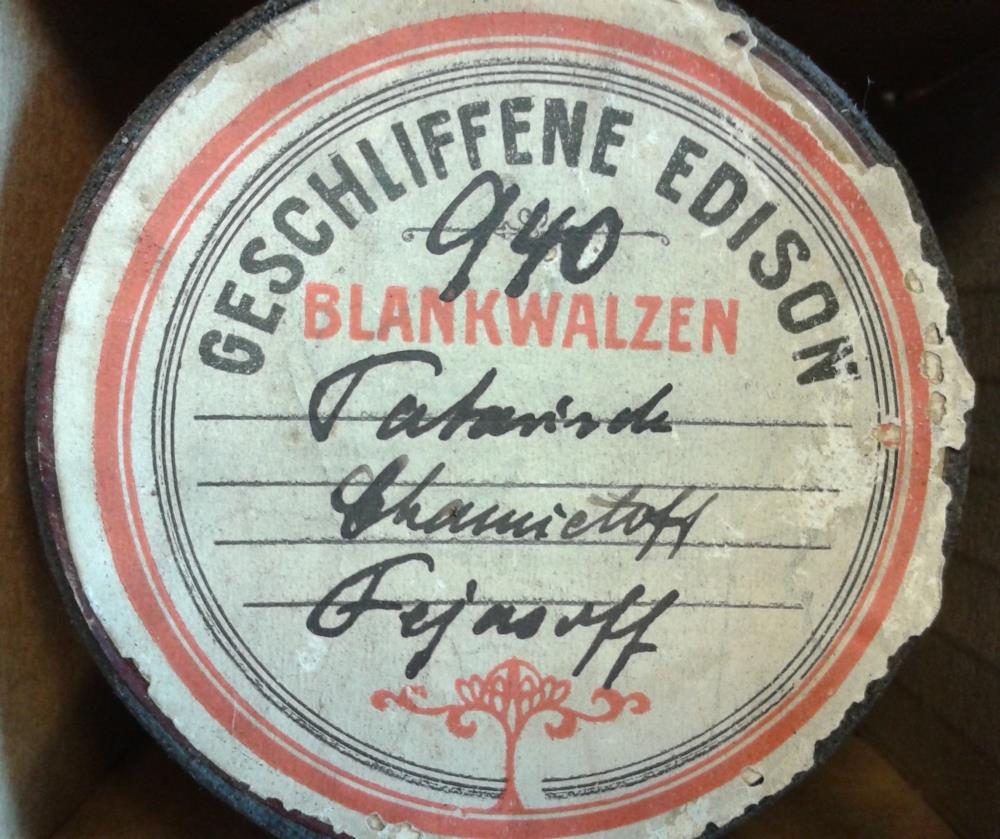 GESCHLIFFENE EDISON
940
BLANKWALZEN
Tatarisch
Chamietoff
Fejasoff